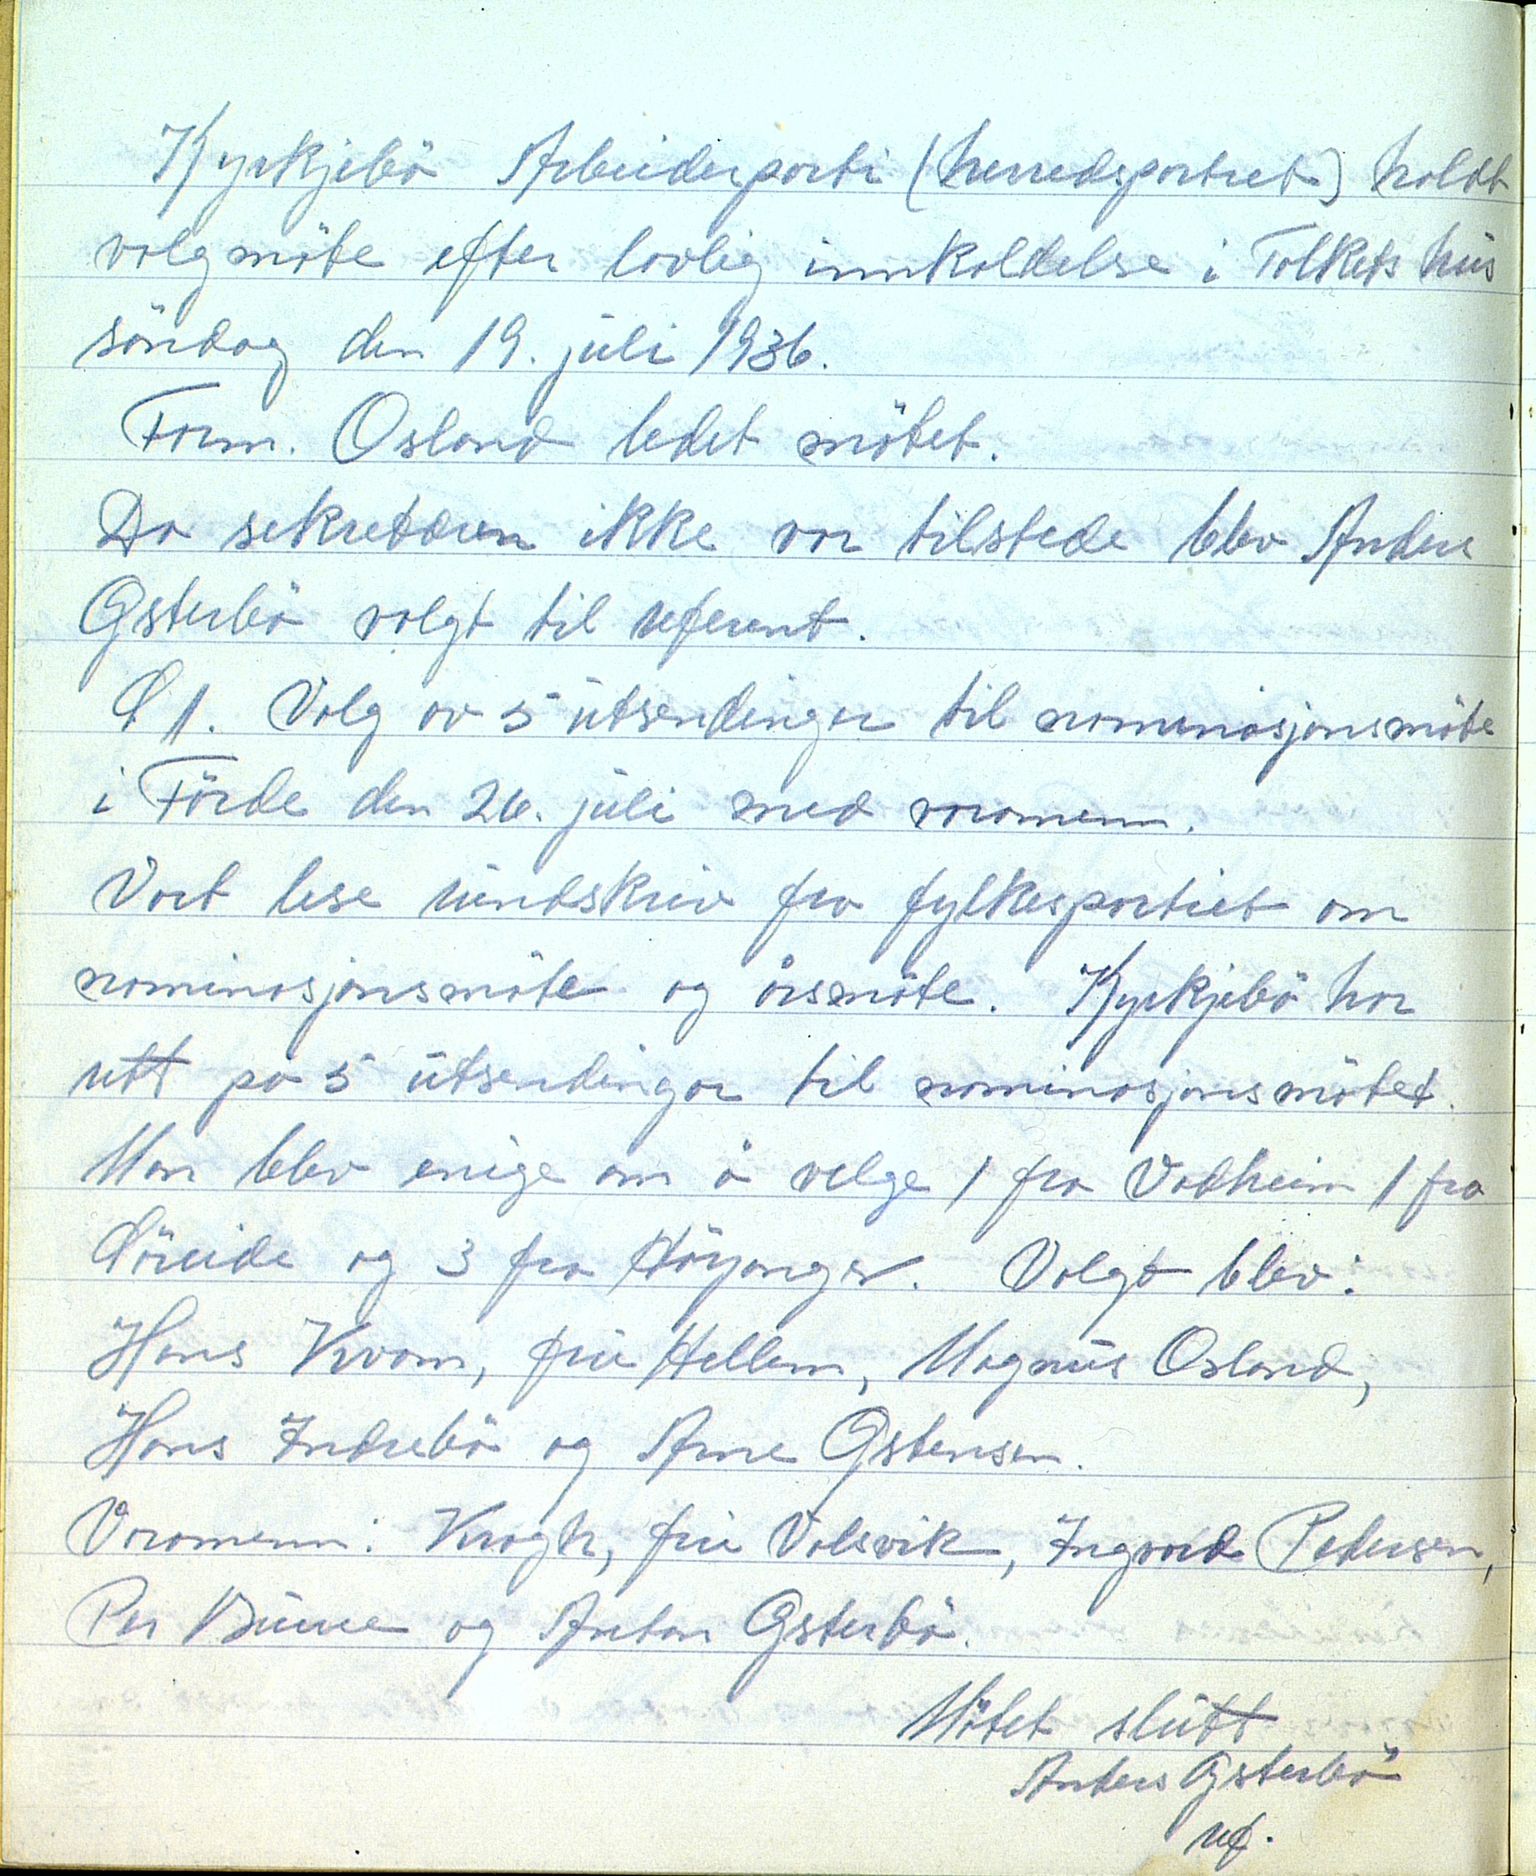 Kyrkjebö Arbeiderparti (herredspartiet) holdt
valgmöte efter lovlig innkaldelse i Folkets hus
söndag den 19. juli 1936.
Form. Osland ledet mötet.
Da sekretæren ikke var tilstede blev Anders
Østerbö valgt til referent.
S 1. Valg av 5 utsendinger til nominasjonsmöte
i Förde den 26. juli med varamenn.
Vart lese rundskriv fra fylkespartiet om
nominasjonsmöte og årsmöte. Kyrkjebö har
rett på 5 utsendingar til nominasjonsmötet.
Man blev enige om å velge 1 fra Vadheim 1 fra
Söreide og 3 fra Höyanger. Valgt blev:
Hans Kvam, fru Hellem, Magnus Osland,
Hans Indrebö og Arne Østensen.
Varamenn: Krogh, fru Valsvik, Ingvard Pedersen,
Per og Anton Østerbö.
Mötet slutt
Anders Østerbö
ref.